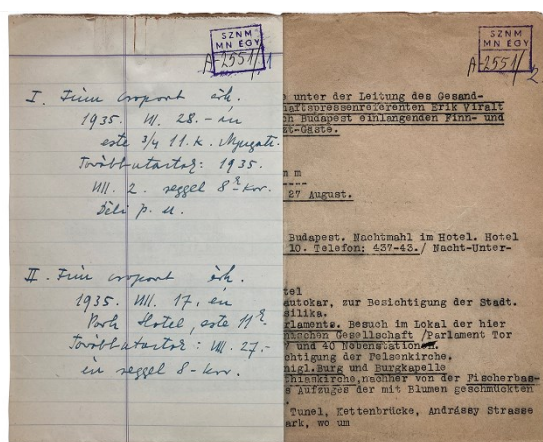 SZNM
MN EGY
A-2551/1
I. Finn csoport érk.
1935. VI. 28.-án
este 3/4 11.k. Nyugati.
Továbbutaztak: 1935.
VII. 2. reggel 8-kor.
Déli p. u.
II. Finn csoport érk.
1935. VIII. 17. én
Park Hotel, este 11
Továbbutaztak: VIII. 27.-
én reggel 8-kor.
SZNM
MN EGY
A-2551/2.
e unter der Leitung des Gesand-
haftspressenreferenten Erik Viralt
ch Budapest einlangenden Finn- und
zt-Gäste.
m m
27 August.
Budapest. Nachtmahl im Hotel. Hotel
10. Telefon: 437-43./ Nacht-Unter-
tel
autokar, zur Besichtigung der Stadt.
silika.
rlaments. Besuch im Lokal der hier
nischen Gesellschaft /Parlament Tor
7 und 40 Nebenstation
chtigung der Felsenkirche.
nigl.Burg und Burgkapelle
thiaskirche,nachher von der Fischerbas-
s Aufzuges der mit Blumen geschmückten
Tunel, Kettenbrücke, Andrássy Strasse
ark, wo um